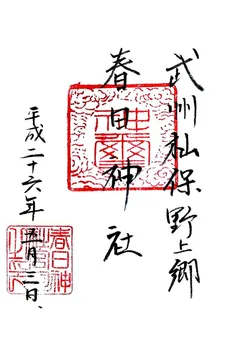 武州私保野上郷
春日神社
平成二十六年五月三日
春日神